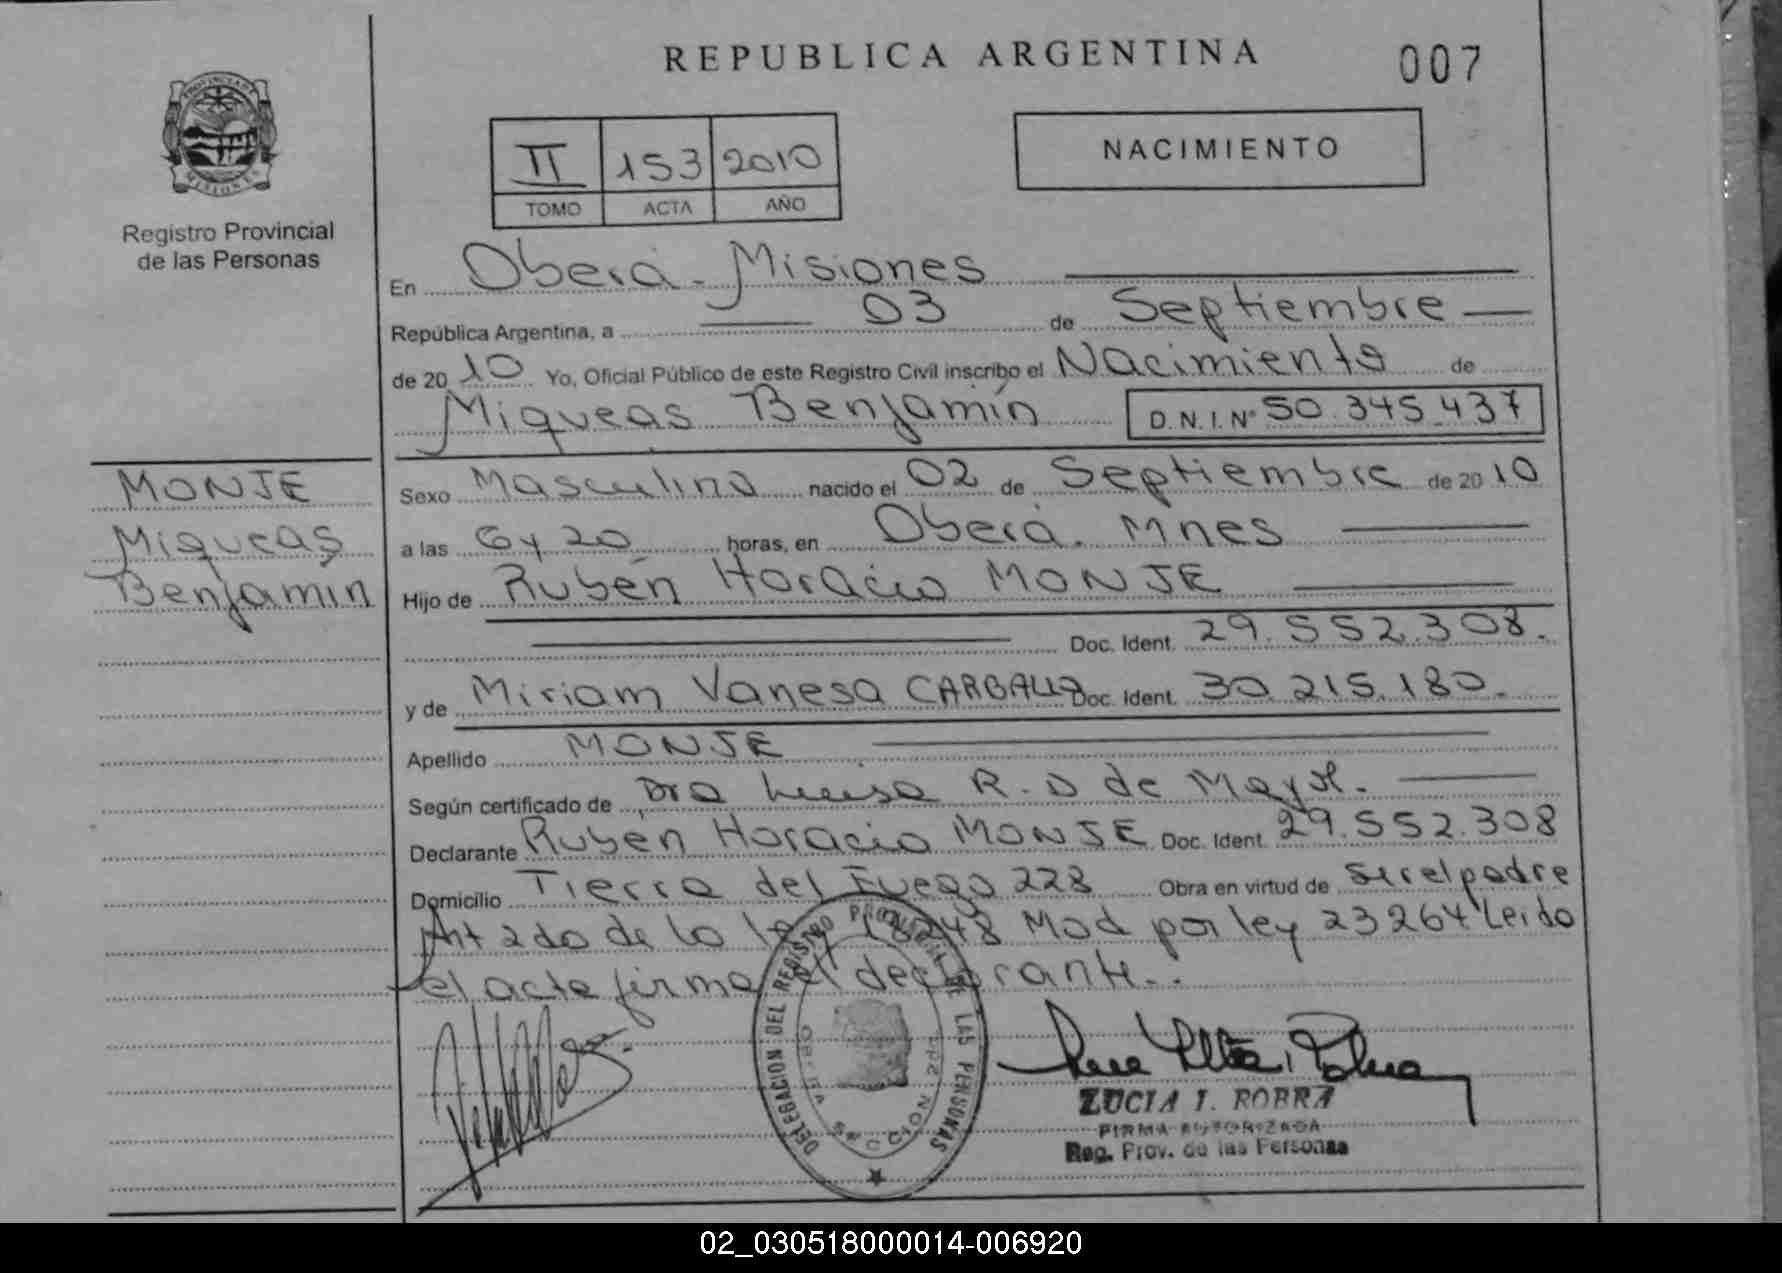 REPUBLICA ARGENTINA
007
PROVINCIA DE
MISIONES
Registro Provincial
de las Personas
II 153 2010
TOMO ACTA AÑO
NACIMIENTO
En Oberá - Misiones
República Argentina, a 03 de Septiembre
de 2010 Yo, Oficial Público de este Registro Civil inscribo el Nacimiento de
Miqueas Benjamín D.N.I. Nº 50.345.437
MONJE
Miqueas
Benjamin
Sexo Masculino nacido el 02 de Septiembre de 2010
a las 6 y 20 horas, en Oberá. Mnes
Hijo de Rubén Horacio MONJE
Doc. Ident. 29.552.308.
y de Miriam Vanesa CARBALLO Doc. Ident. 30.215.180.
Apellido MONJE
Según certificado de Dra Luisa R. D de Mayol.
Declarante Ruben Horacio MONJE Doc. Ident. 29.552.308
Domicilio Tierra del Fuego 228 Obra en virtud de Ser el padre
Art 2do de la ley 18248 Mod por ley 23264 Leido
el acta firma el declarante..
DELEGACION DEL REGISTRO PROVINCIAL DE LAS PERSONAS
OBERA SECCION 2da
LUCIA I. ROBRA
FIRMA AUTORIZADA
Reg. Prov. de las Personas
02_030518000014-006920